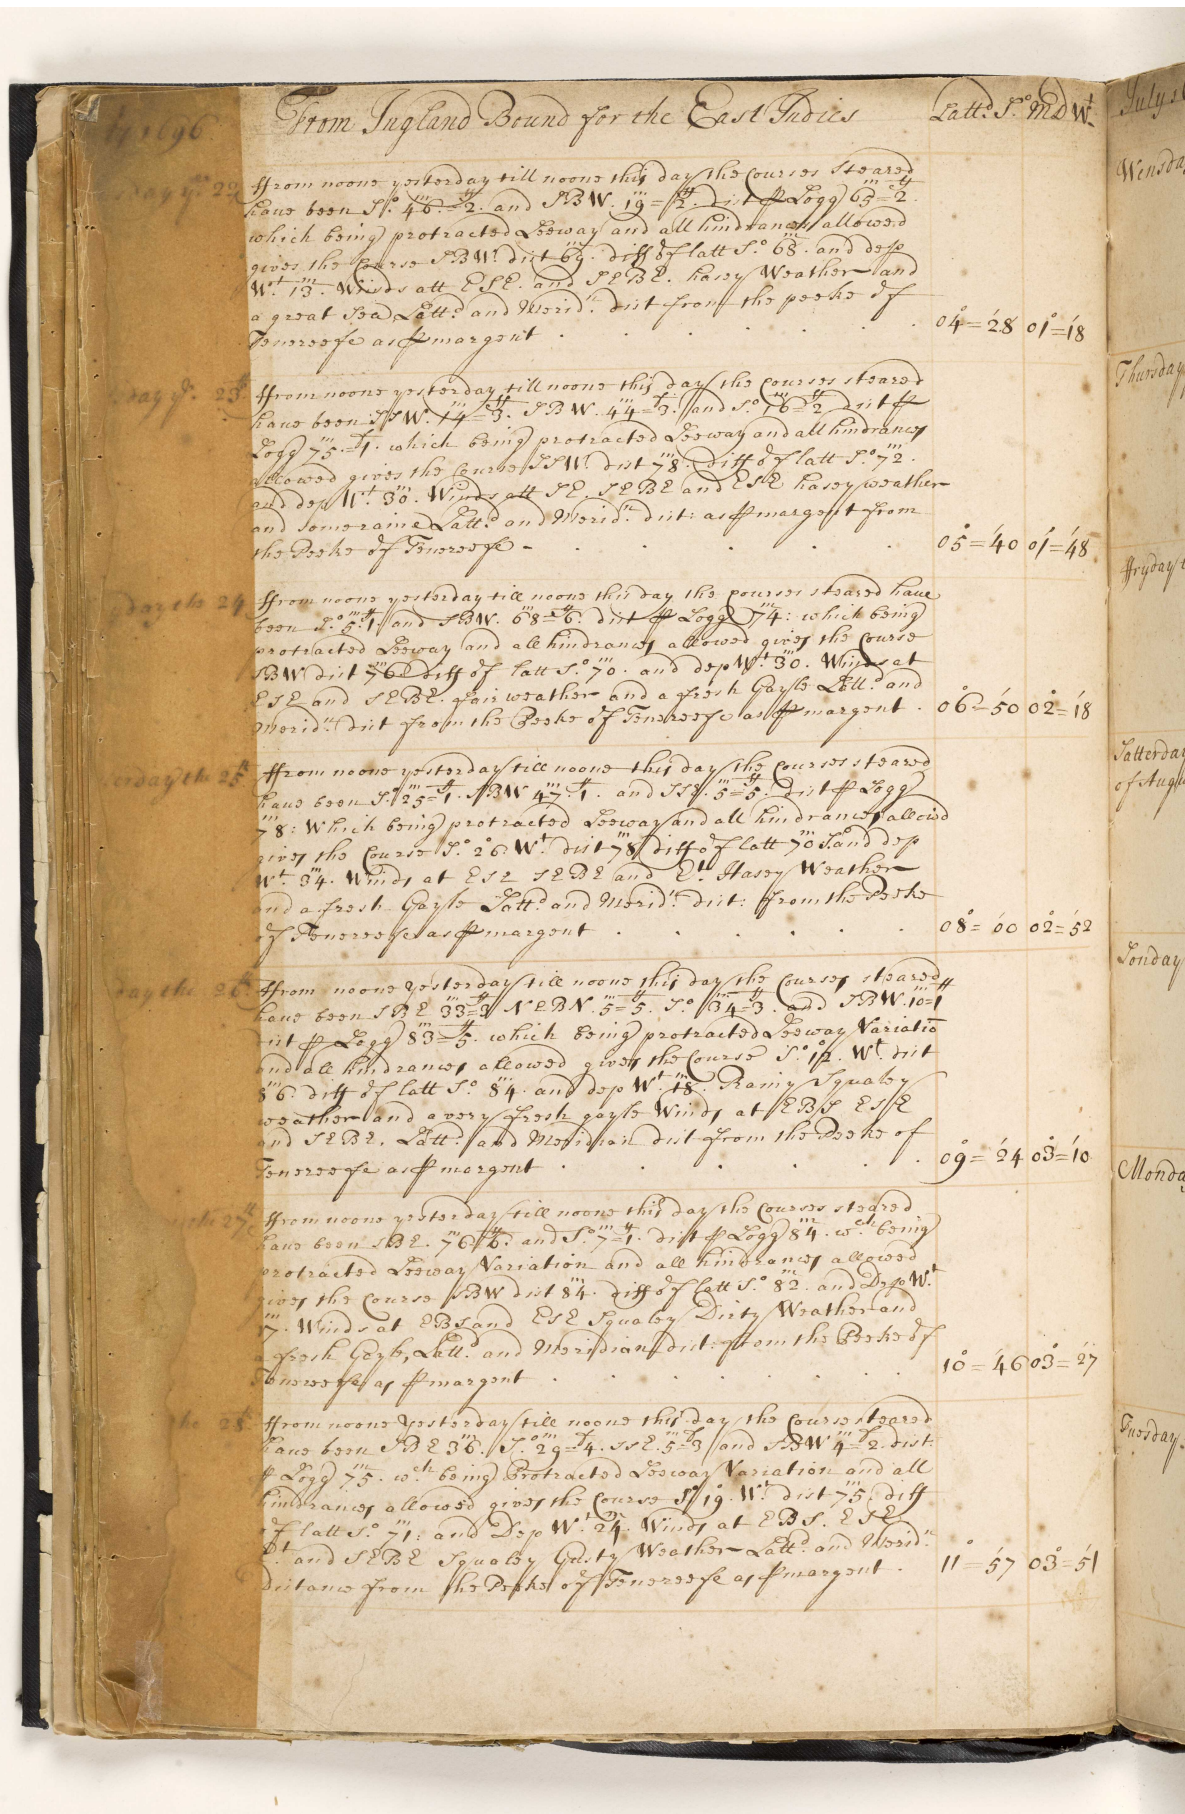 July 1696
From Ingland Bound for the East Indies
Lattd. So. MD Wt
day ye. 22
ffrom noone yesterday till noone this day the Courses steared
have been So. 46=2. and SBW. 19=2. dist ⅌ Logg 65=2.
which being protracted Leeway and all hindrances allowed
gives the Course SBW. dist 69. diff of latt So. 68. and dep
Wt. 13. Winds att ESE. and SEBE. hasey Weather and
a great Sea Lattd. and Meridn. dist from the peeke of
Tenereefe as ⅌ margent . 04°=28 01°=18
day ye. 23th.
ffrom noone yesterday till noone this day the Courses steared
have been SSW. 14=3. SBW. 44=3. and So. 16=2 dist ⅌
Logg 75=1. which being protracted Leeway and all hindrances
allowed gives the Course SSW dist 78. diff of latt So. 72.
and dep Wt. 30. Winds att SE. SEBE and ESE hasey weather
and some raine Lattd. and Meridn. dist: as ⅌ margent from
the Peeke of Tenereefe - 05°=40 01°=48
day the 24
ffrom noone yesterday till noone this day the Courses steared have
been So. 5=1. and SBW. 68=6. dist ⅌ Logg 74: which being
protracted Leeway and all hindrances allowed gives the Course
SBW dist 76 diff of latt So. 70. and dep Wt. 30. Winds at
ESE and SEBE. fair weather and a fresh Gayle Lattd. and
Meridn. dist from the Peeke of Tenereefe as ⅌ margent . 06°=50 02°=18
erday the 25th
ffrom noone yesterday till noone this day the Courses steared
have been So. 25=1. SBW 47=1. and SSE. 5=5. dist ⅌ Logg
78: Which being protracted Leeway and all hindrances allowed
gives the Course So. 26 Wt. dist 78 diff of latt 70 So. and dep
Wt. 34. Winds at ESE SEBE and Et. Hasey Weather
and a fresh Gayle Lattd. and Meridn. dist: from the Peeke
of Tenereefe as ⅌ margent . 08°=00 02°=52
day the 26th.
ffrom noone yesterday till noone this day the Courses steared
have been SBE 33=3 NEBN. 5=5. So. 34=3. and SBW. 10=1
dist ⅌ Logg 83=5. which being protracted Leeway Variatio
and all hindrances allowed gives the Course So. 12. Wt. dist
86. diff of latt So. 84. and dep Wt. 18. Rainy Squaley
weather and a very fresh gayle Winds at EBS ESE
and SEBE. Lattd. and Meridian dist from the Peeke of
Tenereefe as ⅌ margent . 09°=24 03°=10
the 27th.
ffrom noone yesterday till noone this day the Courses steared
have been SBE. 76=6. and So. 7=1. dist ⅌ Logg 84. wch. being
protracted Leeway Variation and all hindrances allowed
gives the Course SBW dist 84. diff of latt So. 82. and Dep Wt.
17. Winds at EBS and ESE Squaley Dirty Weather and
a fresh Gayle, Lattd. and Meridian dist. from the Peeke of
Tenereefe as ⅌ margent . 10°=46 03°=27
the 28th.
ffrom noone Yesterday till noone this day the Course steared
have been SBE 36. So. 29=4. SSE. 5=3 and SBW 4=2. dist:
⅌ Logg 75. wch being Protracted Leeway Variation and all
hindrances allowed gives the Course So. 19. Wt. dist 75. diff
of latt So. 71: and Dep Wt. 24. Winds at EBS. ESE
Et and SEBE Squaley Gusty Weather Lattd. and Meridn.
Distance from the Peeke of Tenereefe as ⅌ margent . 11°=57 03°=51
July
Wensda
Thursday
ffryday
Satterday
of Augu
Sonday
Monda
Tuesday